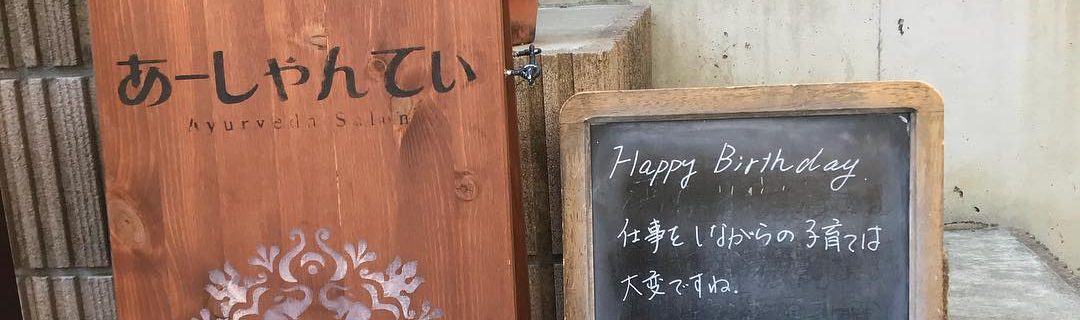 あーしゃんてぃ
Ayurveda Salon
Happy Birthday
仕事をしながらの子育ては
大変ですね.